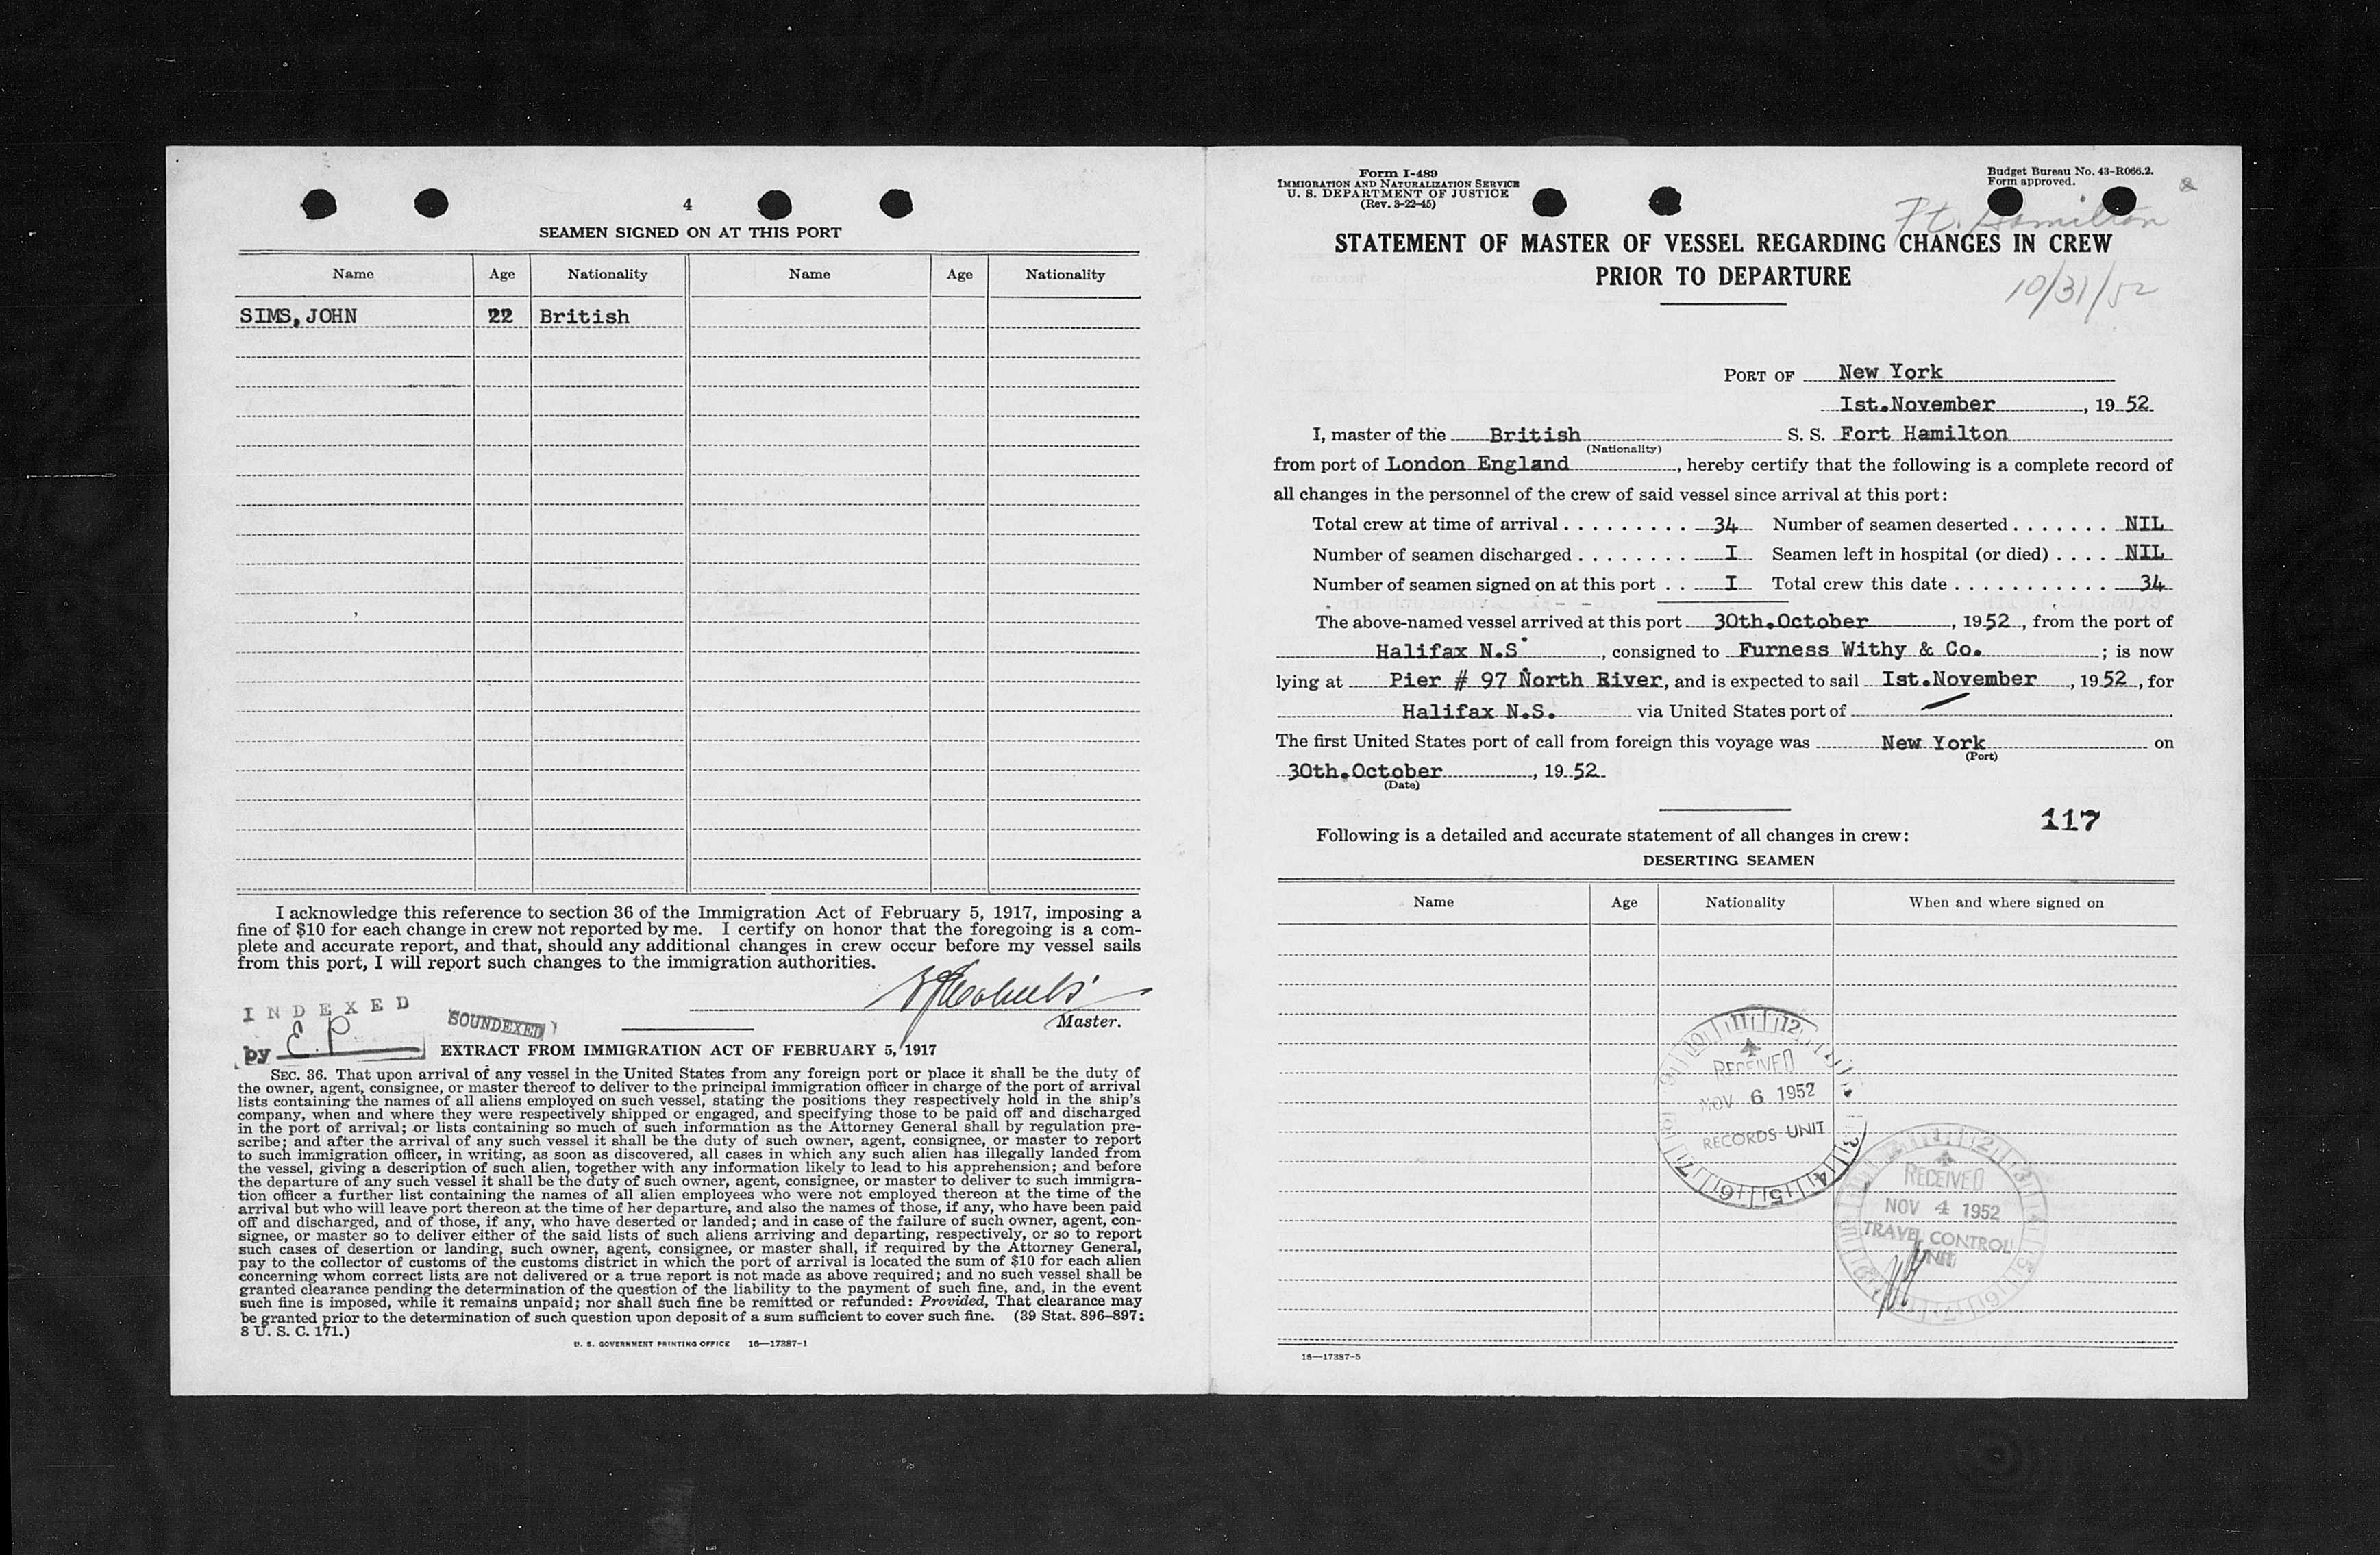 4
SEAMEN SIGNED ON AT THIS PORT
Name Age Nationality Name Age Nationality
SIMS, JOHN 22 British
I acknowledge this reference to section 36 of the Immigration Act of February 5, 1917, imposing a
fine of $10 for each change in crew not reported by me. I certify on honor that the foregoing is a com-
plete and accurate report, and that, should any additional changes in crew occur before my vessel sails
from this port, I will report such changes to the immigration authorities.
Master.
INDEXED
by E.P.
SOUNDEXED
EXTRACT FROM IMMIGRATION ACT OF FEBRUARY 5, 1917
SEC. 36. That upon arrival of any vessel in the United States from any foreign port or place it shall be the duty of
the owner, agent, consignee, or master thereof to deliver to the principal immigration officer in charge of the port of arrival
lists containing the names of all aliens employed on such vessel, stating the positions they respectively hold in the ship's
company, when and where they were respectively shipped or engaged, and specifying those to be paid off and discharged
in the port of arrival; or lists containing so much of such information as the Attorney General shall by regulation pre-
scribe; and after the arrival of any such vessel it shall be the duty of such owner, agent, consignee, or master to report
to such immigration officer, in writing, as soon as discovered, all cases in which any such alien has illegally landed from
the vessel, giving a description of such alien, together with any information likely to lead to his apprehension; and before
the departure of any such vessel it shall be the duty of such owner, agent, consignee, or master to deliver to such immigra-
tion officer a further list containing the names of all alien employees who were not employed thereon at the time of the
arrival but who will leave port thereon at the time of her departure, and also the names of those, if any, who have been paid
off and discharged, and of those, if any, who have deserted or landed; and in case of the failure of such owner, agent, con-
signee, or master so to deliver either of the said lists of such aliens arriving and departing, respectively, or so to report
such cases of desertion or landing, such owner, agent, consignee, or master shall, if required by the Attorney General,
pay to the collector of customs of the customs district in which the port of arrival is located the sum of $10 for each alien
concerning whom correct lists are not delivered or a true report is not made as above required; and no such vessel shall be
granted clearance pending the determination of the question of the liability to the payment of such fine, and, in the event
such fine is imposed, while it remains unpaid; nor shall such fine be remitted or refunded: Provided, That clearance may
be granted prior to the determination of such question upon deposit of a sum sufficient to cover such fine. (39 Stat. 896–897;
8 U. S. C. 171.)
U. S. GOVERNMENT PRINTING OFFICE 16—17387-1
Form I-489
IMMIGRATION AND NATURALIZATION SERVICE
U. S. DEPARTMENT OF JUSTICE
(Rev. 3-22-45)
Budget Bureau No. 43-R066.2.
Form approved.
Ft. Hamilton
STATEMENT OF MASTER OF VESSEL REGARDING CHANGES IN CREW
PRIOR TO DEPARTURE
10/31/52
PORT OF New York
Ist.November, 19 52
I, master of the British S. S. Fort Hamilton
(Nationality)
from port of London England, hereby certify that the following is a complete record of
all changes in the personnel of the crew of said vessel since arrival at this port:
Total crew at time of arrival . . . . . . . . . 34 Number of seamen deserted . . . . . . . NIL
Number of seamen discharged . . . . . . . . I Seamen left in hospital (or died) . . . . NIL
Number of seamen signed on at this port . . I Total crew this date . . . . . . . . . . . . 34
The above-named vessel arrived at this port 30th.October, 1952, from the port of
Halifax N.S, consigned to Furness Withy & Co. ; is now
lying at Pier # 97 North River, and is expected to sail Ist.November, 1952, for
Halifax N.S. via United States port of
The first United States port of call from foreign this voyage was New York on
(Port)
30th.October, 19 52
(Date)
117
Following is a detailed and accurate statement of all changes in crew:
DESERTING SEAMEN
Name Age Nationality When and where signed on
RECEIVED
NOV 6 1952
RECORDS UNIT
RECEIVED
NOV 4 1952
TRAVEL CONTROL
UNIT
16—17387-5